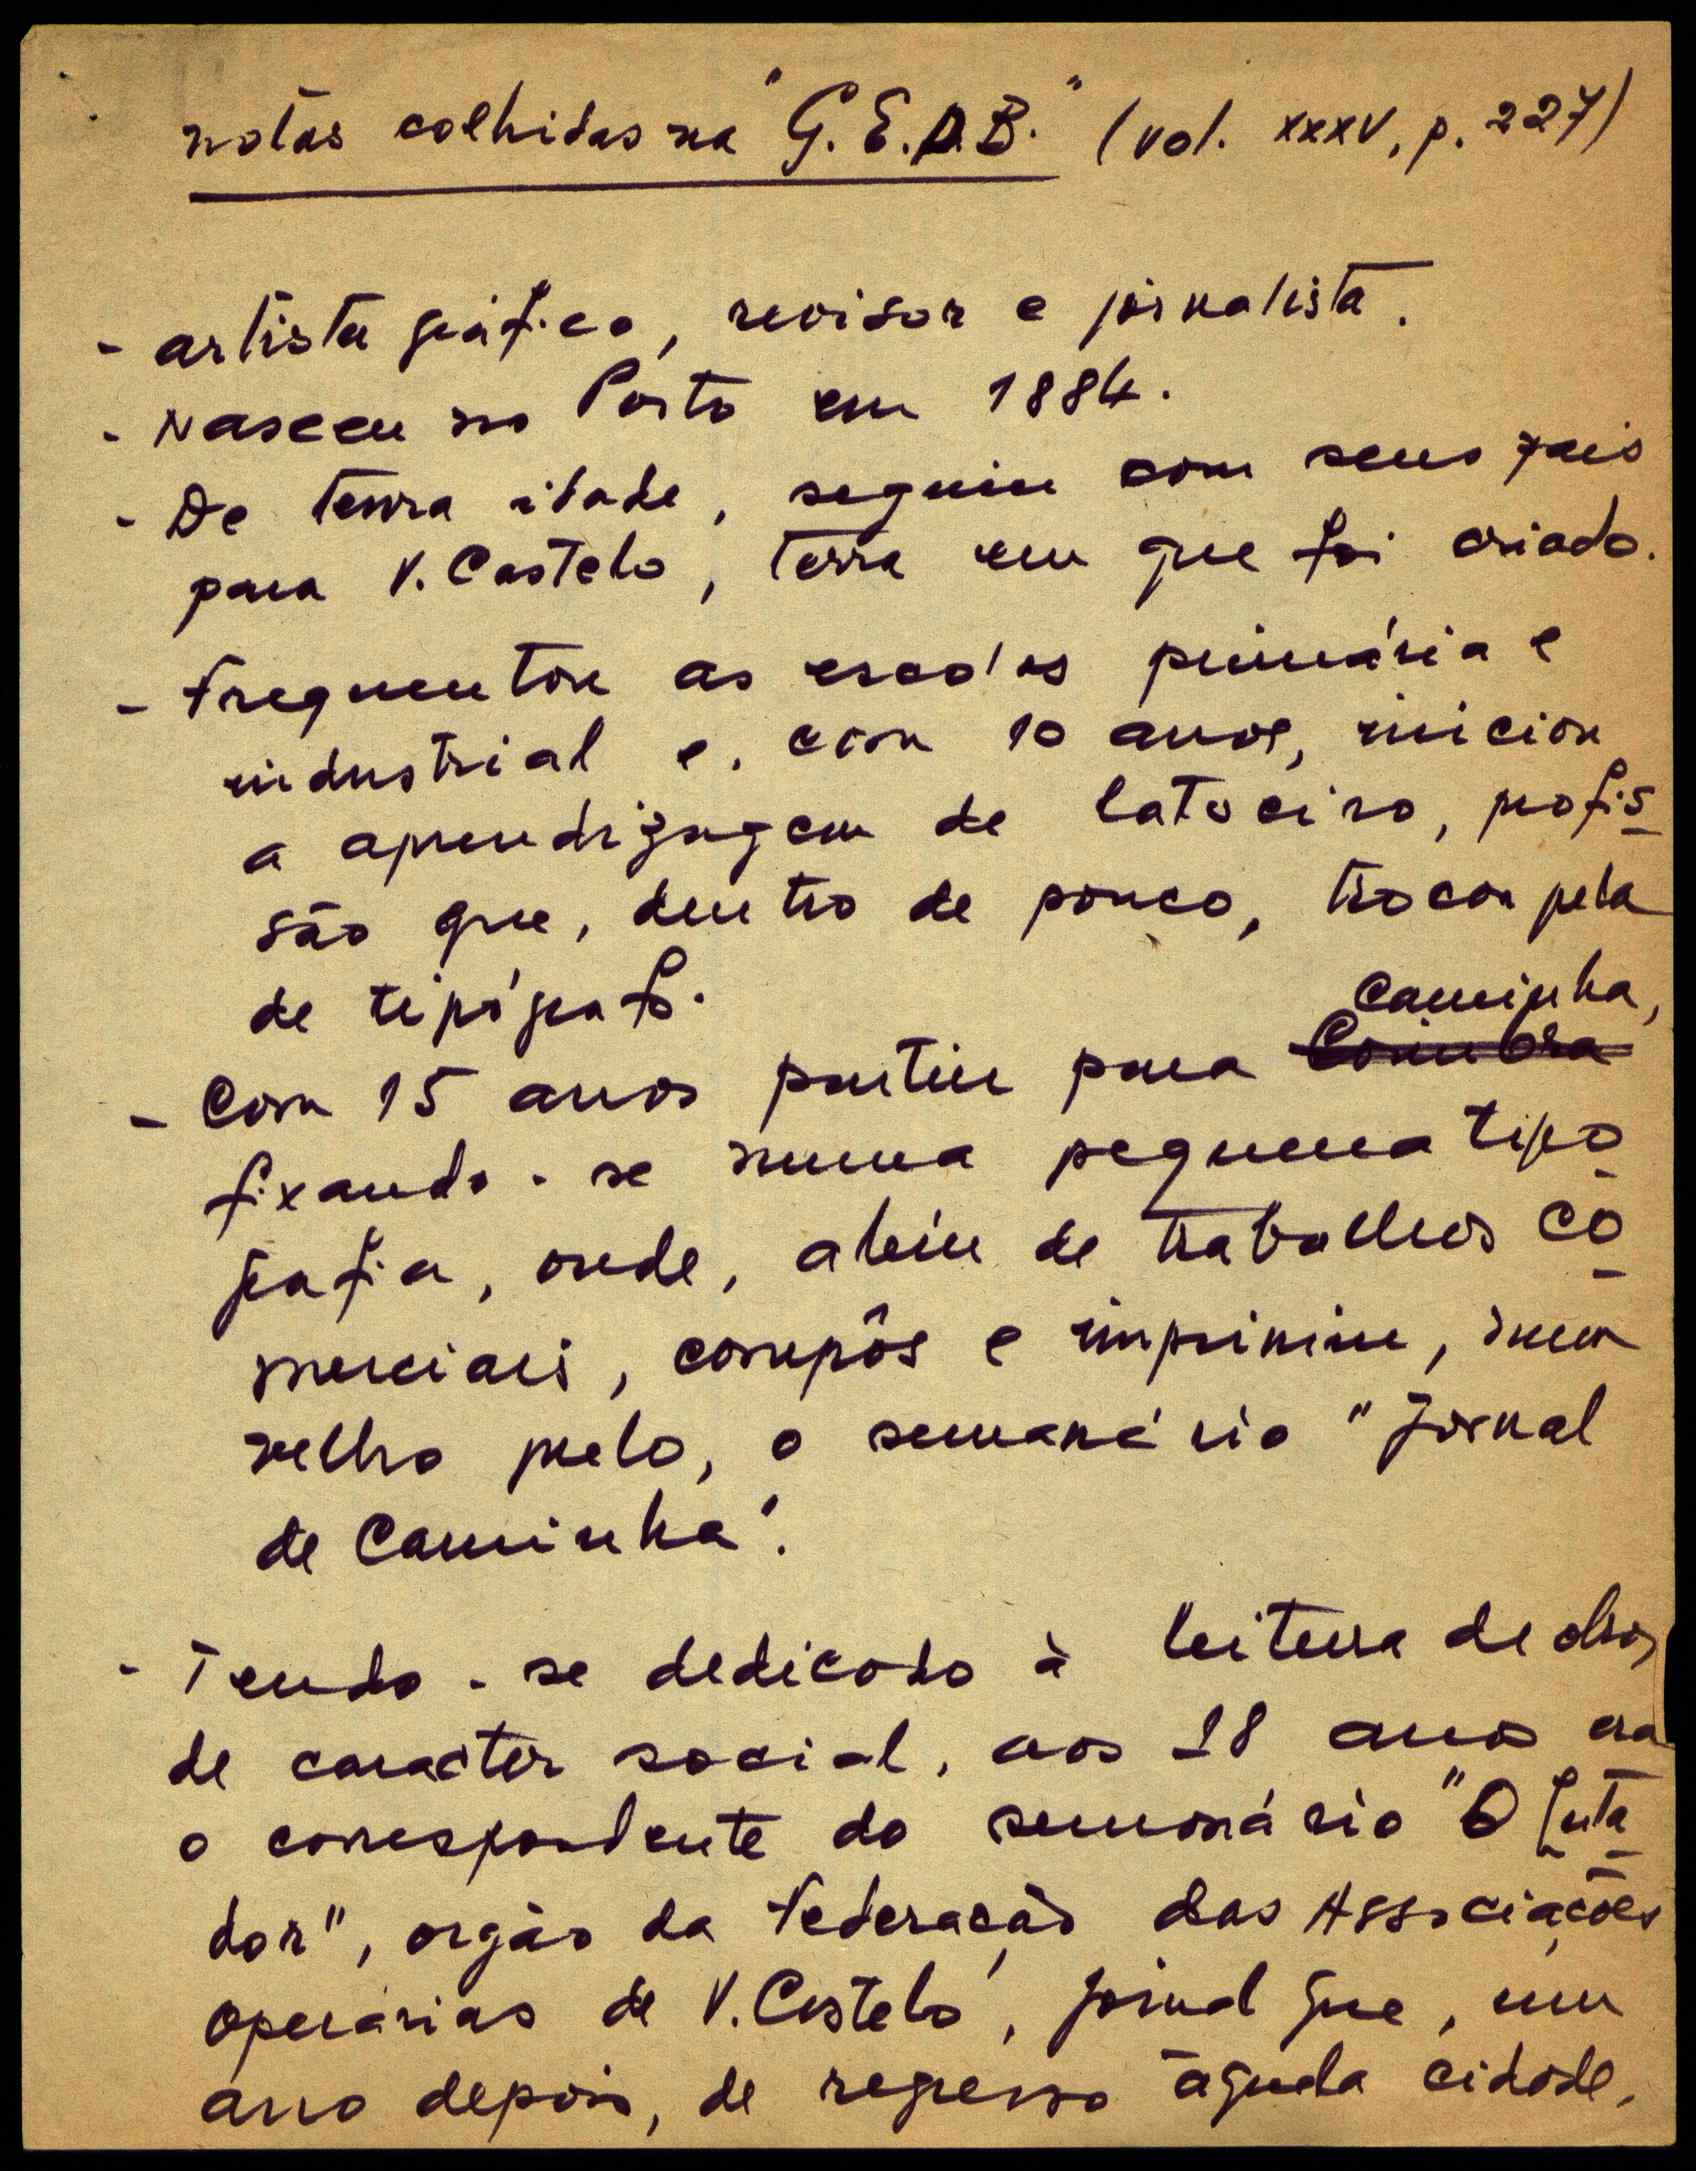 notas colhidas na "G.E.P.B." (vol. XXXV, p. 227)
- artista gráfico, revisor e jornalista.
- Nasceu no Porto em 1884.
- De tenra idade, seguiu com seus pais
para V. Castelo, terra em que foi criado.
- Frequentou as escolas primária e
industrial e, com 10 anos, iniciou
a aprendizagem de latoeiro, profis
são que, dentro de pouco, trocou pela
de tipógrafo.
Caminha,
- Com 15 anos partiu para Coimbra
fixando-se numa pequena tipo
grafia, onde, além de trabalhos co
merciais, compôs e imprimiu, num
velho prelo, o semanário "Jornal
de Caminha".
- Tendo-se dedicado à leitura de obras
de carácter social, aos 18 anos era
o correspondente do semanário "O Luta
dor", orgão da Federação das Associações
Operárias de V. Castelo, jornal que, um
ano depois, de regresso àquela cidade,